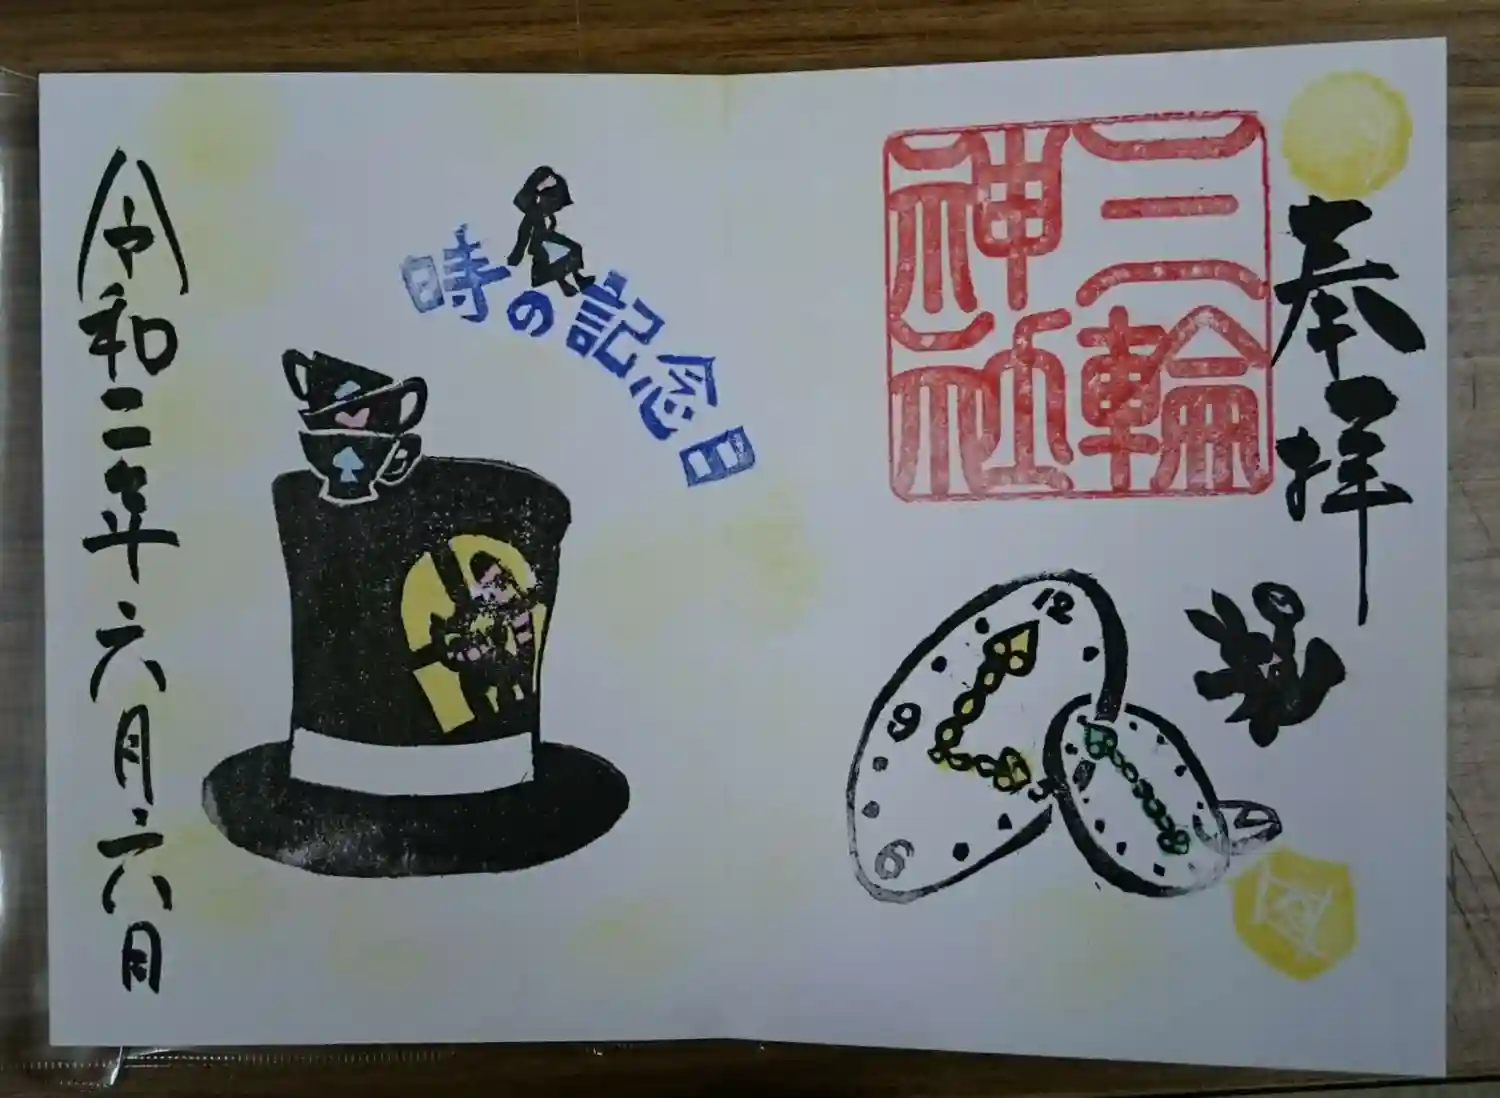 奉拝
三輪
神社
12
9
3
6
時の記念日
令和二年六月六日